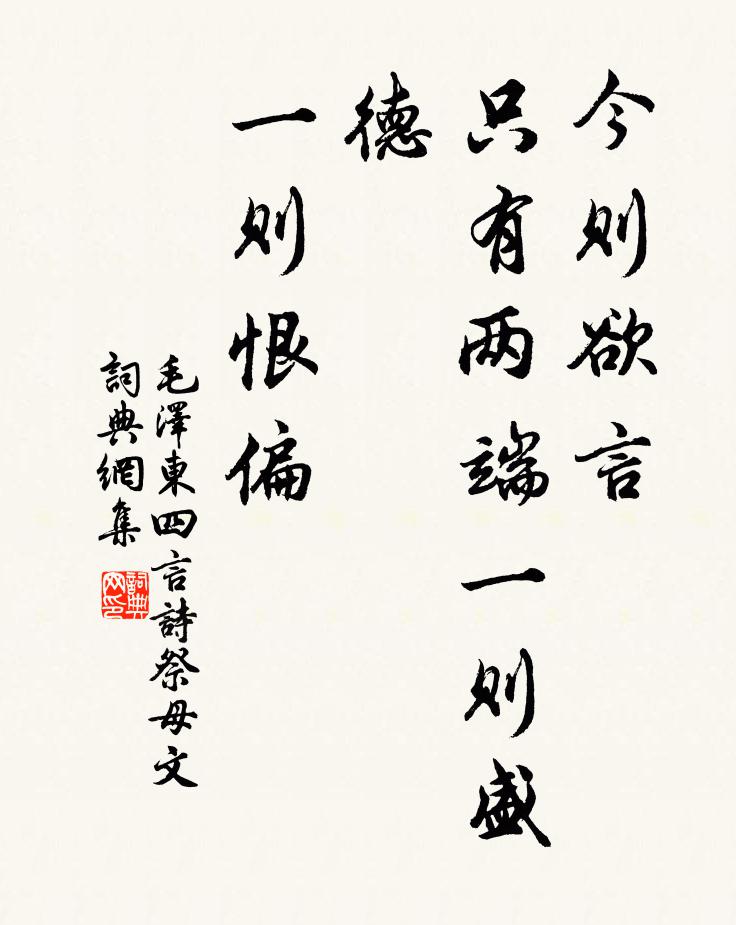 今则欲言
只有两端一则盛
德
一则恨偏
毛澤東四言詩祭母文
詞典網集
詞典网印